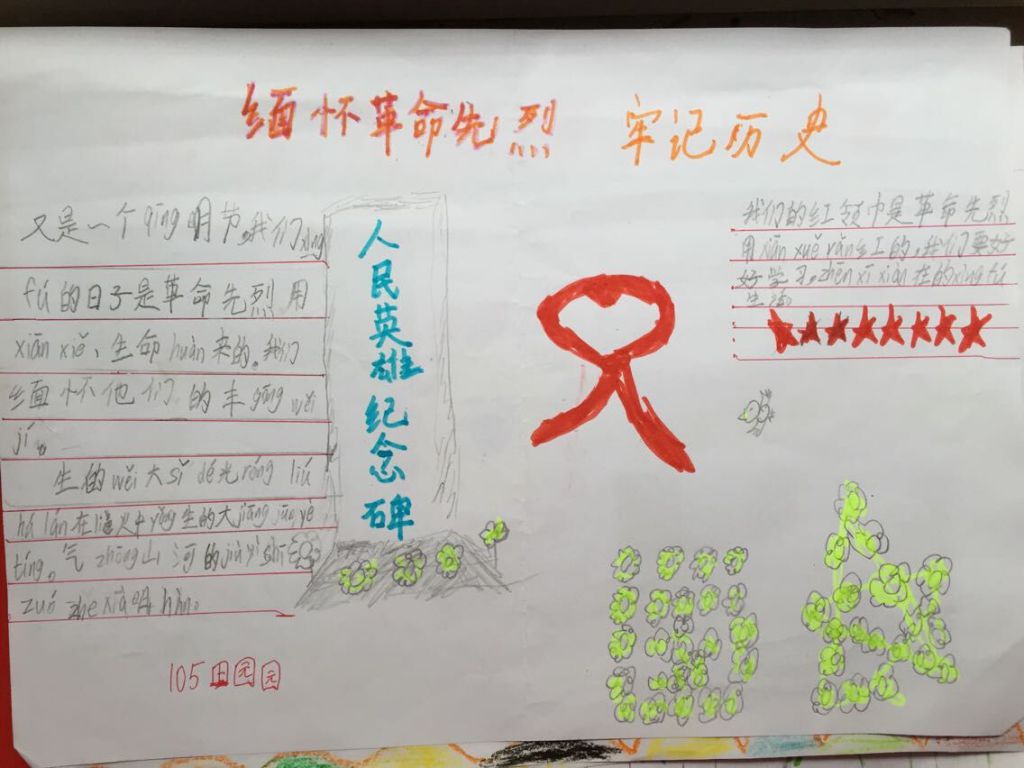 缅怀革命先烈 牢记历史
又是一个qīng明节,我们xìng
fú的日子是革命先烈用
xiān xiě、生命huàn来的。我们
缅怀他们的丰gōng wěi
jí。
生的wěi大sǐ dé光róng liú
火中yǒng生的大jiāng
tíng。气zhōng山河的
zuó zhe
105 田园园
人民英雄纪念碑
我们的红领巾是革命先烈
用xiān xuě rǎn红的,我们要好
好学习,zhēn xī xiàn在的xìng fú
生活